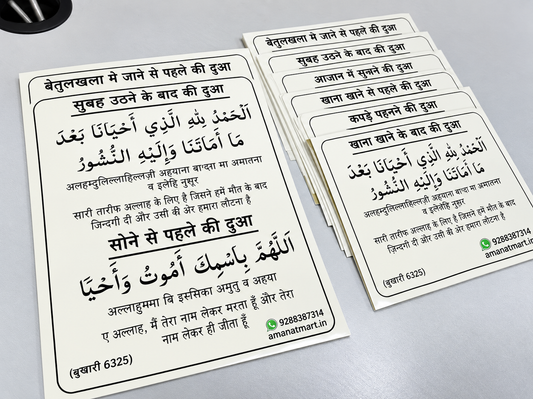 बेतुलखला मे जाने से पहले की दुआ
सुबह उठने के बाद की दुआ
اَلْحَمْدُ لِلّٰهِ الَّذِي أَحْيَانَا بَعْدَ
مَا أَمَاتَنَا وَإِلَيْهِ النُّشُورُ
अलहम्दुलिल्लाहिल्लज़ी अहयाना बाग्दा मा अमातना
व इलेहि नुसूर
सारी तारीफ अल्लाह के लिए है जिसने हमें मौत के बाद
ज़िन्दगी दी और उसी की ओर हमारा लौटना है
सोने से पहले की दुआ
اَللّٰهُمَّ بِاسْمِكَ أَمُوتُ وَأَحْيَا
अल्लाहुममा बि इससिका अमुतु व अहया
ए अल्लाह, मैं तेरा नाम लेकर मरता हूँ और तेरा
नाम लेकर ही जीता हूँ
9288387314
amanatmart.in
(बुखारी 6325)
बेतुलखला मे जाने से पहले की दुआ
सुबह उठने के बाद की दुआ
आजान में सुनने की दुआ
खाना खाने से पहले की दुआ
कपड़े पहनने की दुआ
खाना खाने के बाद की दुआ
اَلْحَمْدُ لِلّٰهِ الَّذِي أَحْيَانَا بَعْدَ
مَا أَمَاتَنَا وَإِلَيْهِ النُّشُورُ
अलहम्दुलिल्लाहिल्लज़ी अहयाना बाग्दा मा अमातना
व इलेहि नुसूर
सारी तारीफ अल्लाह के लिए है जिसने हमें मौत के बाद
ज़िन्दगी दी और उसी की ओर हमारा लौटना है
9288387314
amanatmart.in
(बुखारी 6325)